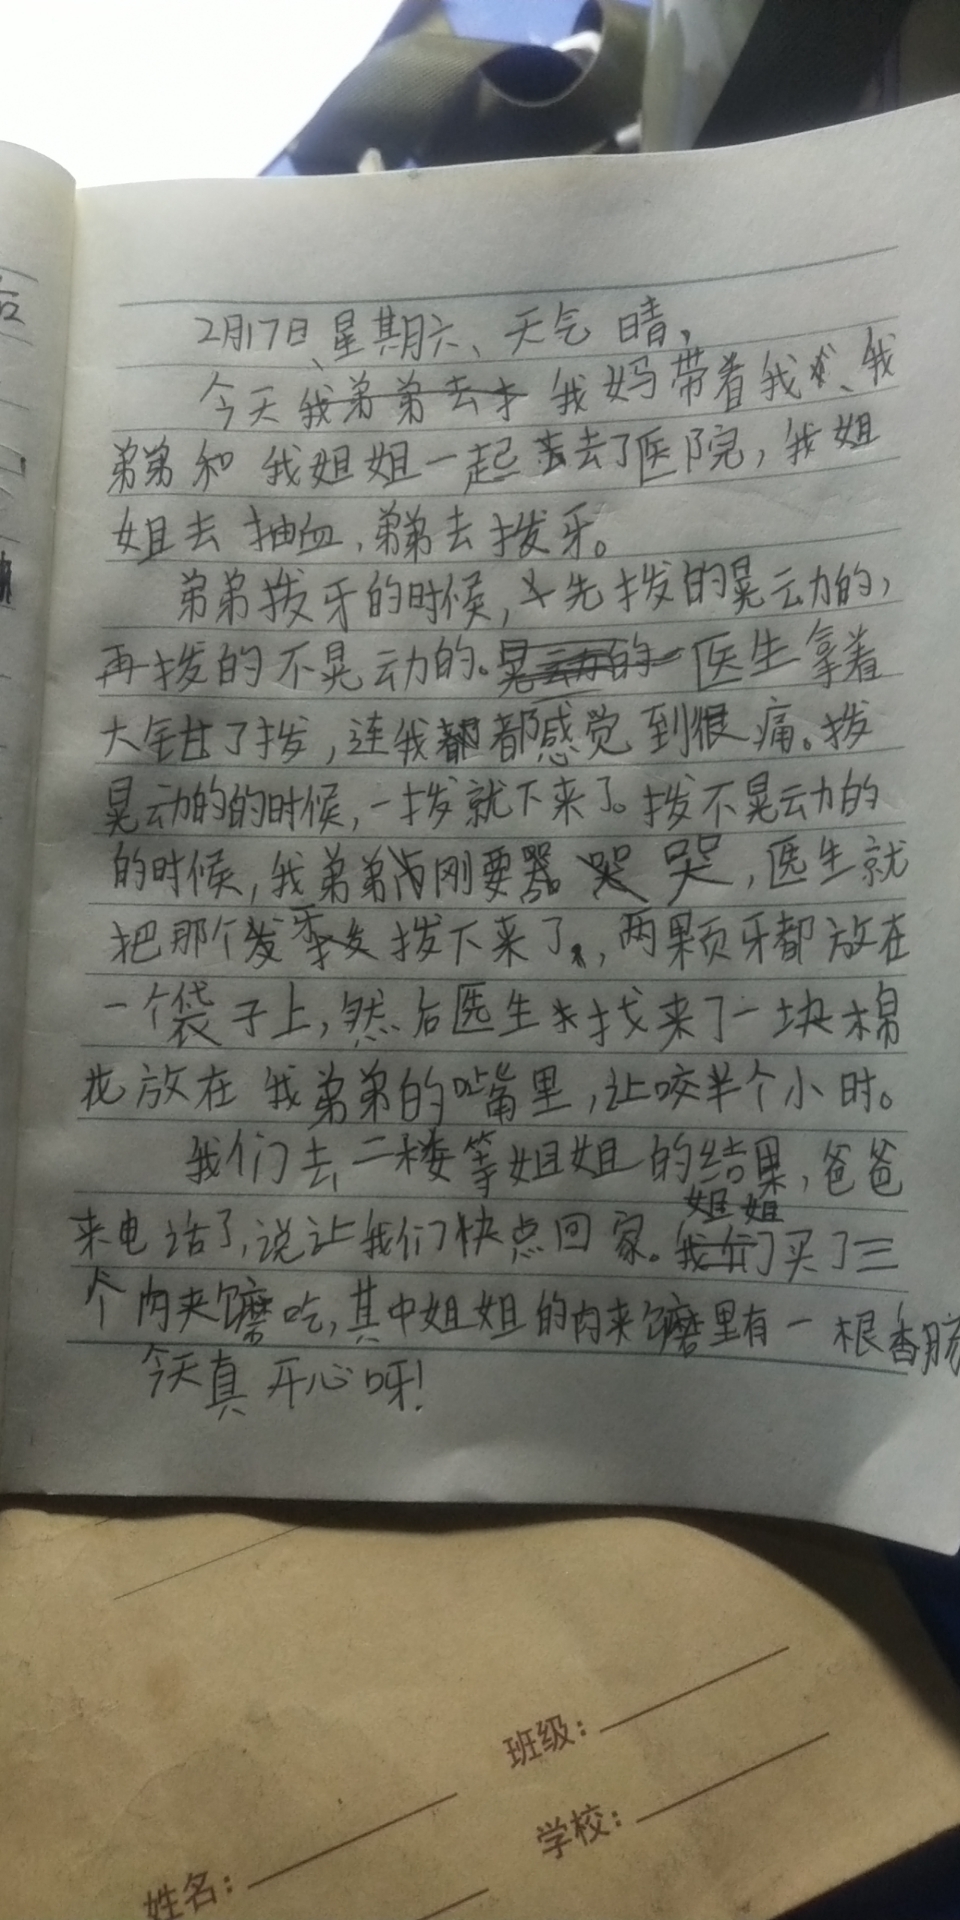 2月17日、星期六、天气 晴,
今天 我妈带着我、我
弟弟和我姐姐一起去了医院,我姐
姐去抽血,弟弟去拨牙。
弟弟拨牙的时候,先拨的晃动的,
再拨的不晃动的。医生拿着
大钳了拨,连我都感觉到很痛。拨
晃动的的时候,一拨就下来了。拨不晃动的
的时候,我弟弟刚要哭,医生就
把那个牙拨下来了,两颗牙都放在
一个袋子上,然后医生找来了一块棉
花放在我弟弟的嘴里,让咬半个小时。
我们去二楼等姐姐的结果,爸爸
来电话了,说让我们快点回家。姐姐买了三
个肉夹馍吃,其中姐姐的肉夹馍里有一根香肠
今天真开心呀!
班级:
学校:
姓名: